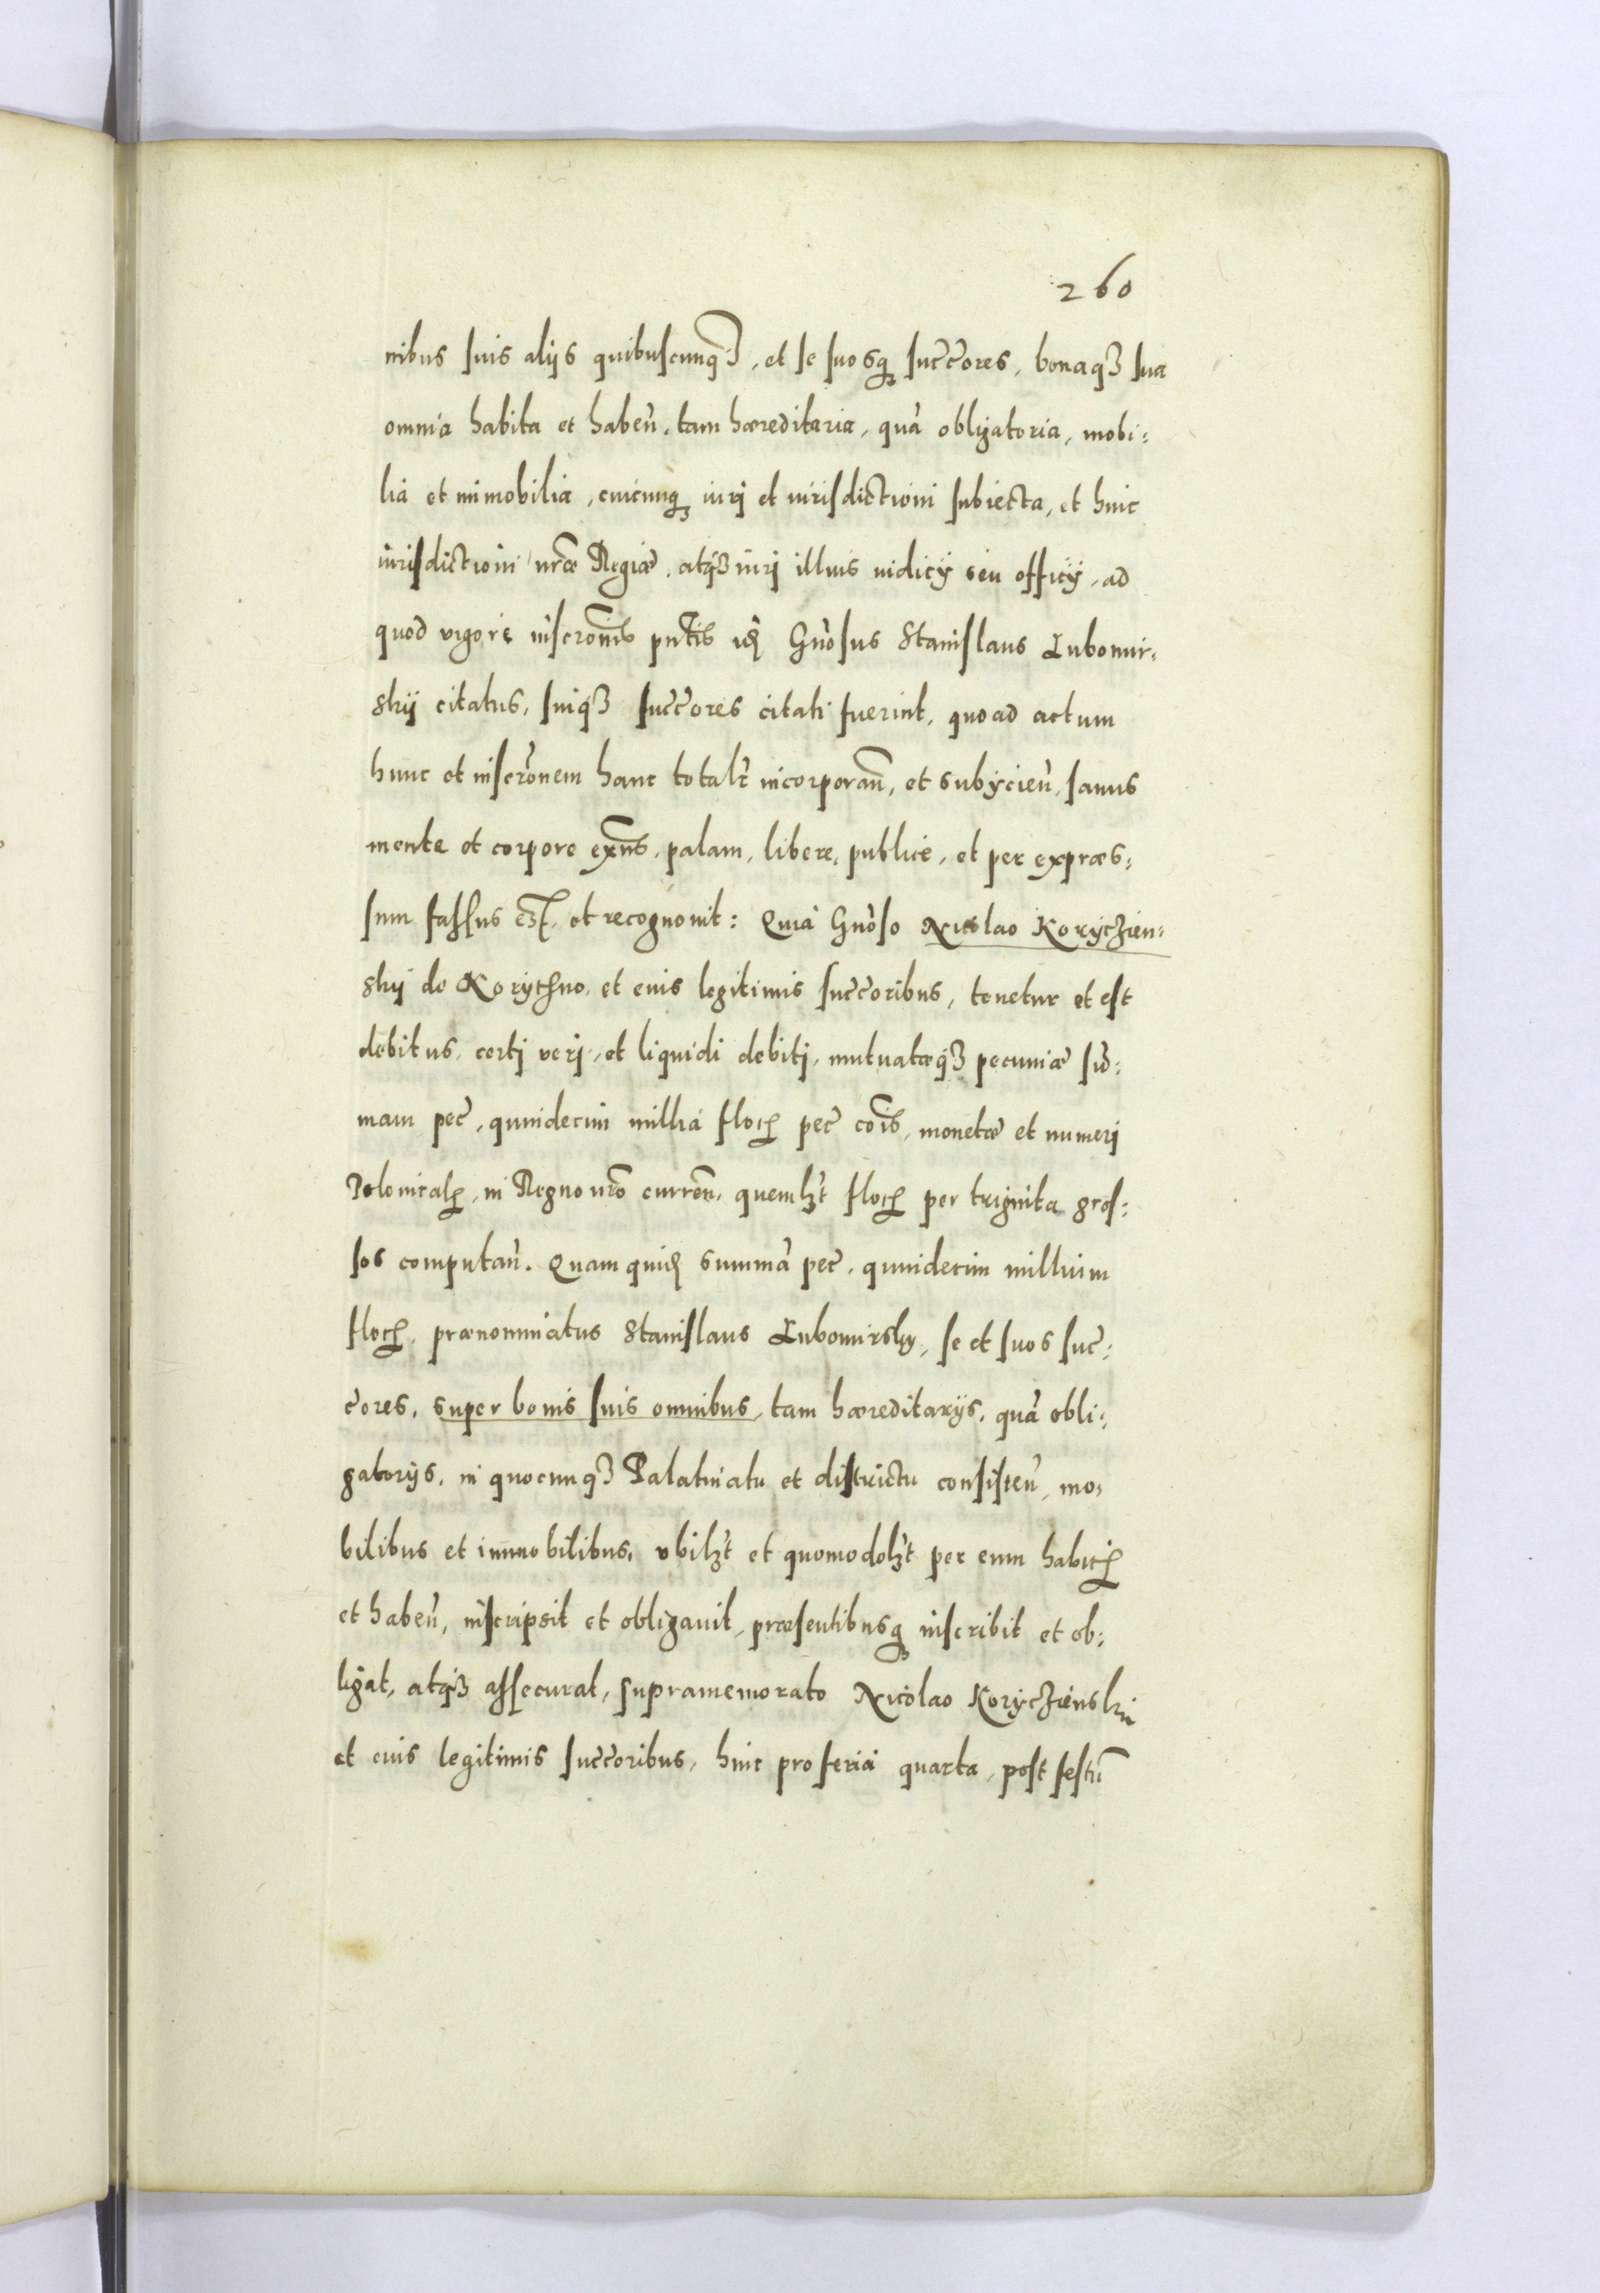 260
nibus suis alijs quibuscunq₃, et se suosq₃ succ̃ores, bonaq₃ sua
omnia habita et haben̄. tam hæreditaria, quā obligatoria, mobi:
lia et immobilia, cuicunq₃ iurj et iurisdictioni subiecta, et huic
iurisdictioni nr̃æ Regiæ, atq₃ iurj illius iudicÿ seu officÿ, ad
quod vigore inscr̃onis pn̄tis Gn̄osus Stanislaus Lubomir:
skij citatus, suiq₃ succ̃ores citati fuerint, quoad actum
hunc et inscr̃onem hanc totalr̃ incorporan̄, et subÿcien̄, sanus
mente et corpore exn̄s, palam, libere, publice, et per expræs:
sum fassus est, et recognouit: Quia Gn̄oso Nicolao Korÿczien:
skij de et euis legitimis succ̃oribus, tenetur et est
debitus, certj verj, et liquidi debitj, mutuatæq₃ pecuniæ sum̄:
mam pec̃, quindecim millia flor̃ pec̃ cõis, monetæ et numerj
Polonical̃, in Regno nr̃o curren̄, quemlꝫt flor̃ per triginta gros:
sos computan̄. Quam quid̃ summā pec̃, quindecim millium
flor̃, prænominatus Stanislaus Lubomirsky, se et suos suc̃:
c̃ores, super bonis suis omnibus, tam hæreditarÿs, quā obli:
gatorÿs, in quocunq₃ Palatinatu et districtu consisten̄, mo:
bilibus et immobilibus, vbilꝫt et quomodolꝫt per eum habit̃
et haben̄, inscripsit et obligauit, præsentibusq₃ inscribit et ob:
ligat, atq₃ assecurat, supramemorato Nicolao Korÿczienskij
et euis legitimis succ̃oribus, huic pro feria quarta, post festū